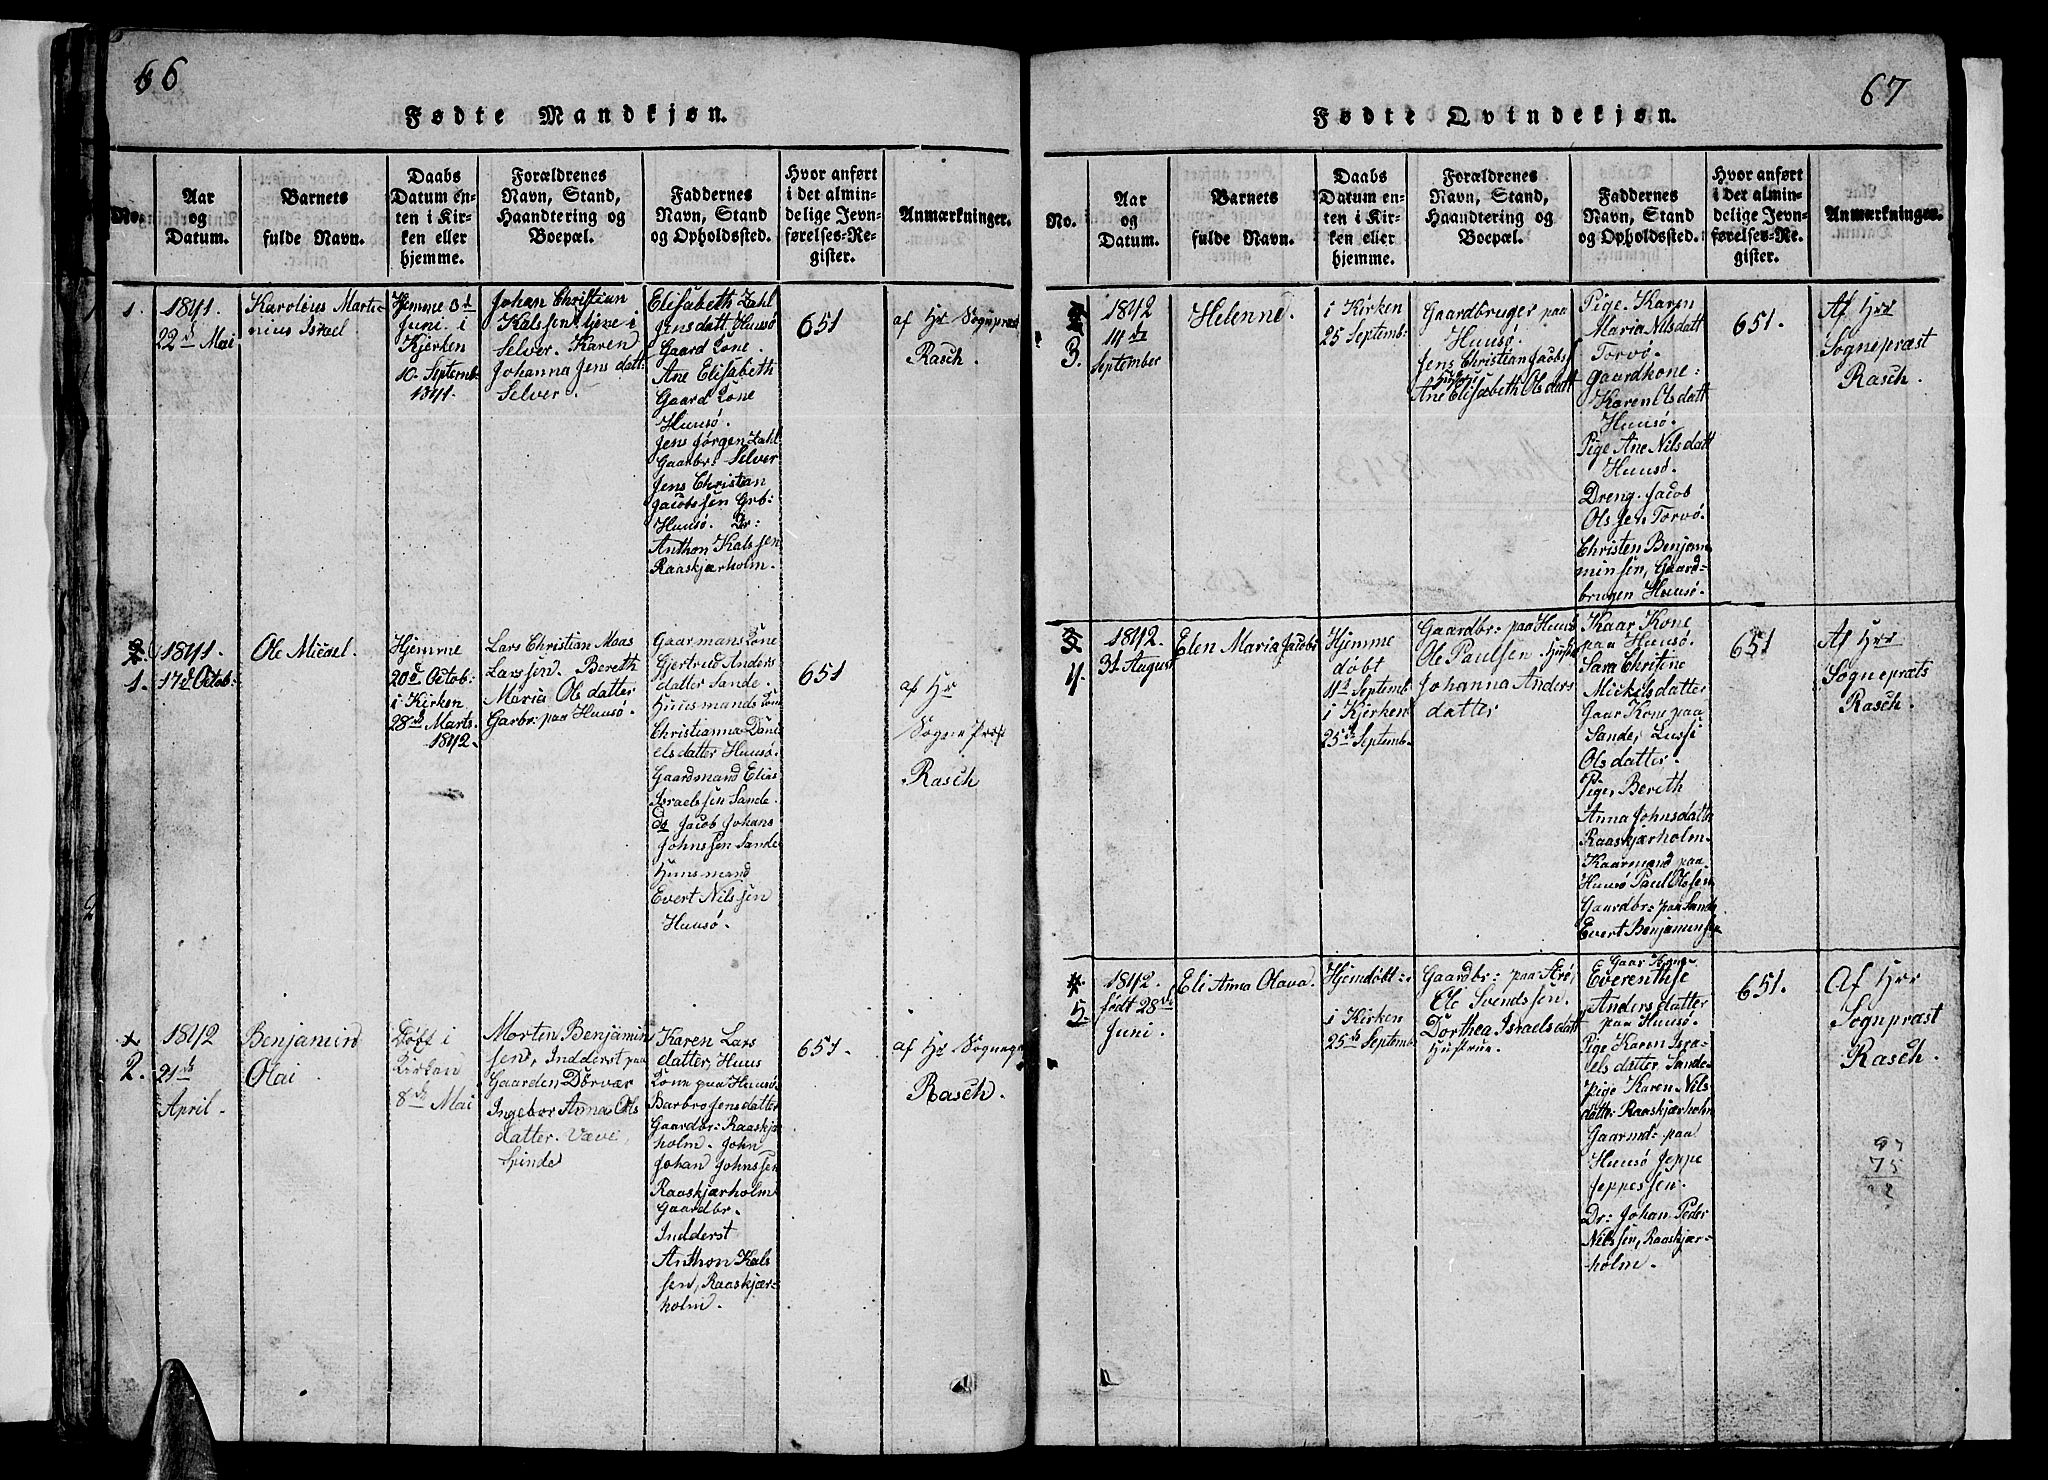 66
Fødte Mandkjøn.
No.
Aar
og
Datum.
Barnets
fulde Navn.
Daabs
Datum en-
ten i Kir-
ken eller
hjemme.
Forældrenes
Navn, Stand,
Haandtering og
Boepæl.
Faddernes
Navn, Stand
og Opholdssted.
Hvor anført
i det almin-
delige Jevn-
førelses-Re-
gister.
Anmærkninger.
1.
1841.
22d Mai
Karolius Marti-
nius Israel
Hjemme 3d
Juni. i
Kjerken
10. Septemb
1841.
Johan Christian
Kalssen tjene i
Selver. Karen
Johanna Jens datt
Selver.
Elisabeth Zahl
Jensdatt Huusø
Gaard Kone.
Ane Elisabeth
Gaard Kone
Huusø.
Jens Jørgen Zahl
Gaarbr: Selver
Jens Christan
Jacobssen Grb:
Huusø. Dr:
Anthon Kalssen
Raaskjærholm.
651
af Hr Sognepræst
Rasch.
1.
1841.
17d Octob:
Ole Micael
Hjemme
20d Octob:
i Kirken
28de Marts
1842.
Lars Christian Maas
Larssen. Bereth
Maria Ols datter
Garbr: paa Huusø.
Gaarmans Kone
Gjertrud Anders
datter Sande.
Huusmands Kone
Christianna Dani
elsdatter Huusø.
Gaardmand Elias
Israelssen Sande.
do Jacob Johans
Johnssen Sande
Huusmand
Evert Nilssen
Huusø.
651
af Hr
Sogne Præst
Rasch
2.
1842
21de
April.
Benjamin
Olai
Døbt i
Kirken
8de Mai
Morten Benjamin
sen, Inderst paa
Gaarden Dørvær
Ingebor Anna Ols
datter. Væve
Spinde
Karen Lars
datter, Huus
Kone paa Huusø
Barbro Jensdatter
Gaardbr: Raaskjær
holm. John
Johan Johnssen
Raaskjærholm
Gaardbr.
Indderst
Anthon Kals
sen, Raaskjær-
holm.
651.
af Hr Sognepr
Rasch.
67
Fødte Qvindekjøn.
No.
Aar
og
Datum.
Barnets
fulde Navn.
Daabs
Datum en-
ten i Kir-
ken eller
hjemme.
Forældrenes
Navn, Stand,
Haandtering og
Boepæl.
Faddernes
Navn, Stand
og Opholdssted.
Hvor anført
i det almin-
delige Jevn-
førelses-Re-
gister.
Anmærkninger.
3.
1842
14de
September
Helenne.
i Kirken
25 Septemb:
Gaardbruger paa
Huusø.
Jens Christian Jacobs
Ane Elisabeth Olsdatt
Pige. Karen
Maria Nilsdatt
Torvø.
Gaardkone:
Karen Olsdatt
Huusø.
Pige Ane Nilsdatt
Huusø.
Dreng. Jacob
Olssen Torvø.
Christen Benjami
minsen, Gaard-
brugen Huusø.
651.
Af Hrr
Sognepræst
Rasch.
4.
1842.
31 August
Elen Maria Jacobi
Hjemme
døbt
4de Septemb
i Kjerken
25de Septemb.
Gaardbr: paa Huus
Ole Paulsen. Hustr
Johanna Anders
datter
Kaar Kone
paa Huusø.
Sara Christine
Mickelsdatter
Gaar Kone paa
Sande, Lussi
Olsdatter.
Pige, Bereth
Anna Johnsdatt
Raaskjærholm.
Kaarmand paa
Huusø Paul Olesen
Gaardbr: paa Sande
Evert Benjaminsen
651
Af Hrr
Sognepræts
Rasch.
5.
1842.
født 28de
Juni
Eli Anna Olava.
Hjemdøbt:
i Kirken
25de Septemb
Gaardbr: paa Arø,
Ole Svendssen.
Dorthea Israelsdatt
Hustrue.
Gaar Kone
Everenthse
Andersdatter
paa Huusø.
Pige Karen Isra
elsdatter Sande.
Pige Karen Nils
datter Raaskjærholm
Gaarmd: paa
Huusø Jeppe
Jeppessen.
Dr: Johan Peder
Nilssen, Raaskjær-
holm.
651.
Af Hrr
Sognepræst
Rasch.
97
75
22